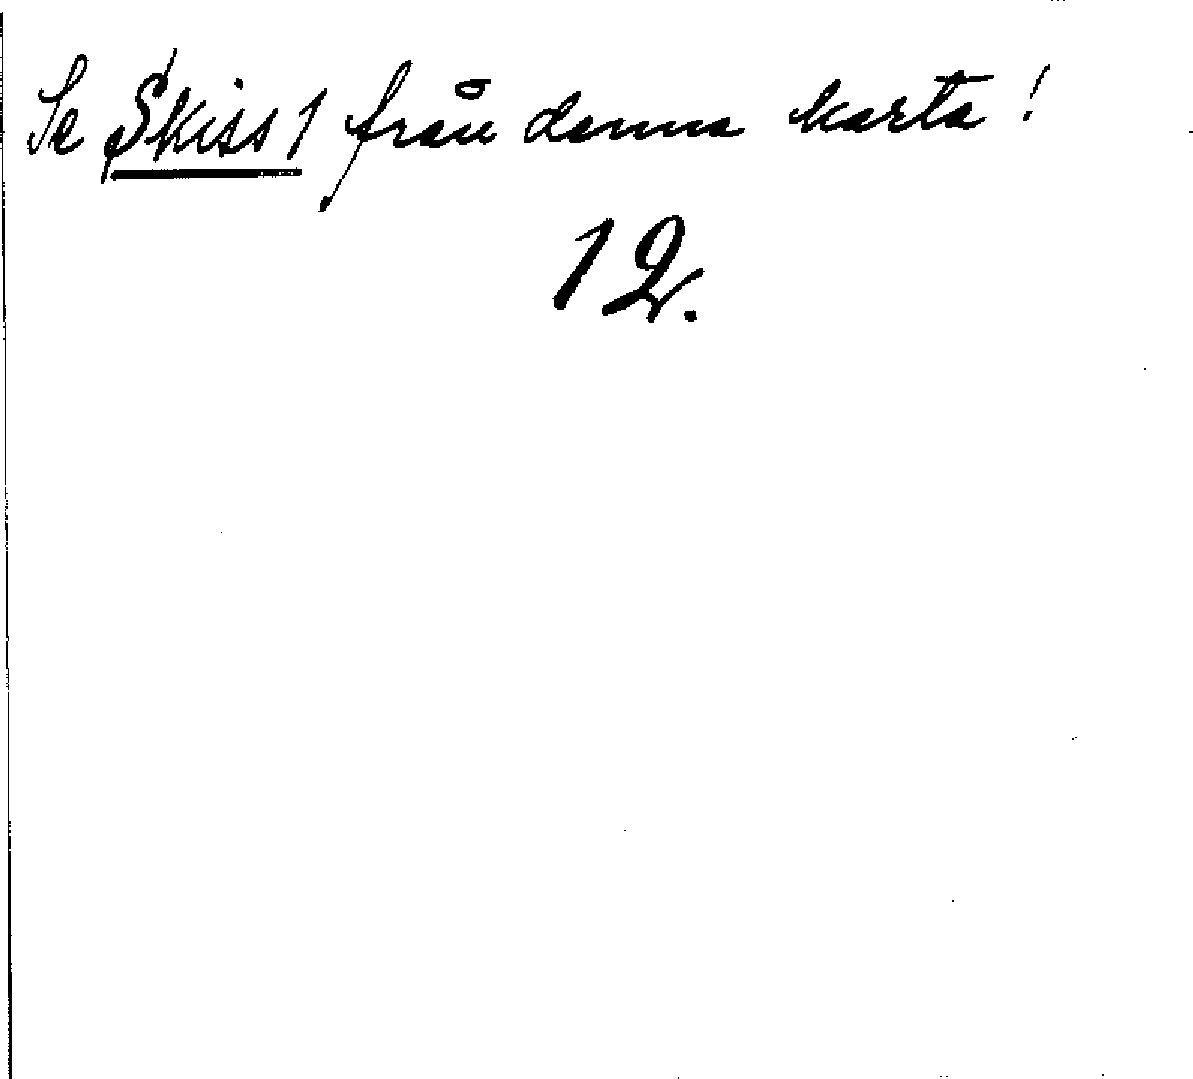 Se Skiss 1 från denna karta!
12.